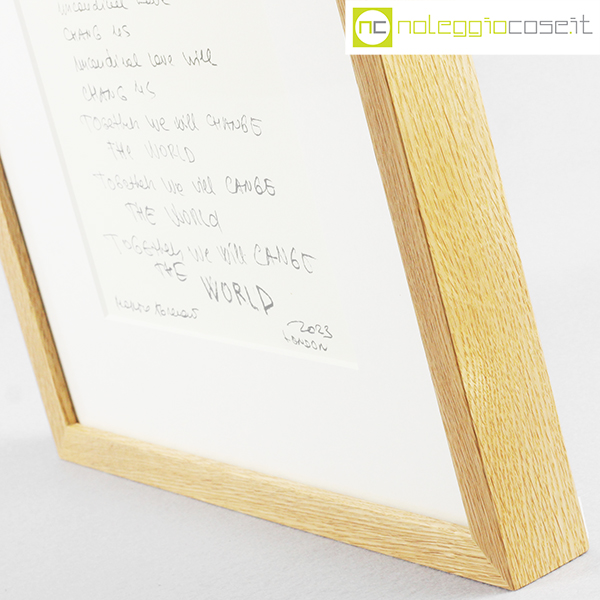 nc noleggiocose.it
CHANG US
unconditional love will
CHANG US
TOGETHER WE will CHANGE
THE WORLD
TOGETHER WE will CANGE
THE WORLD
TOGETHER WE WILL CANGE
THE WORLD
2023
LONDON